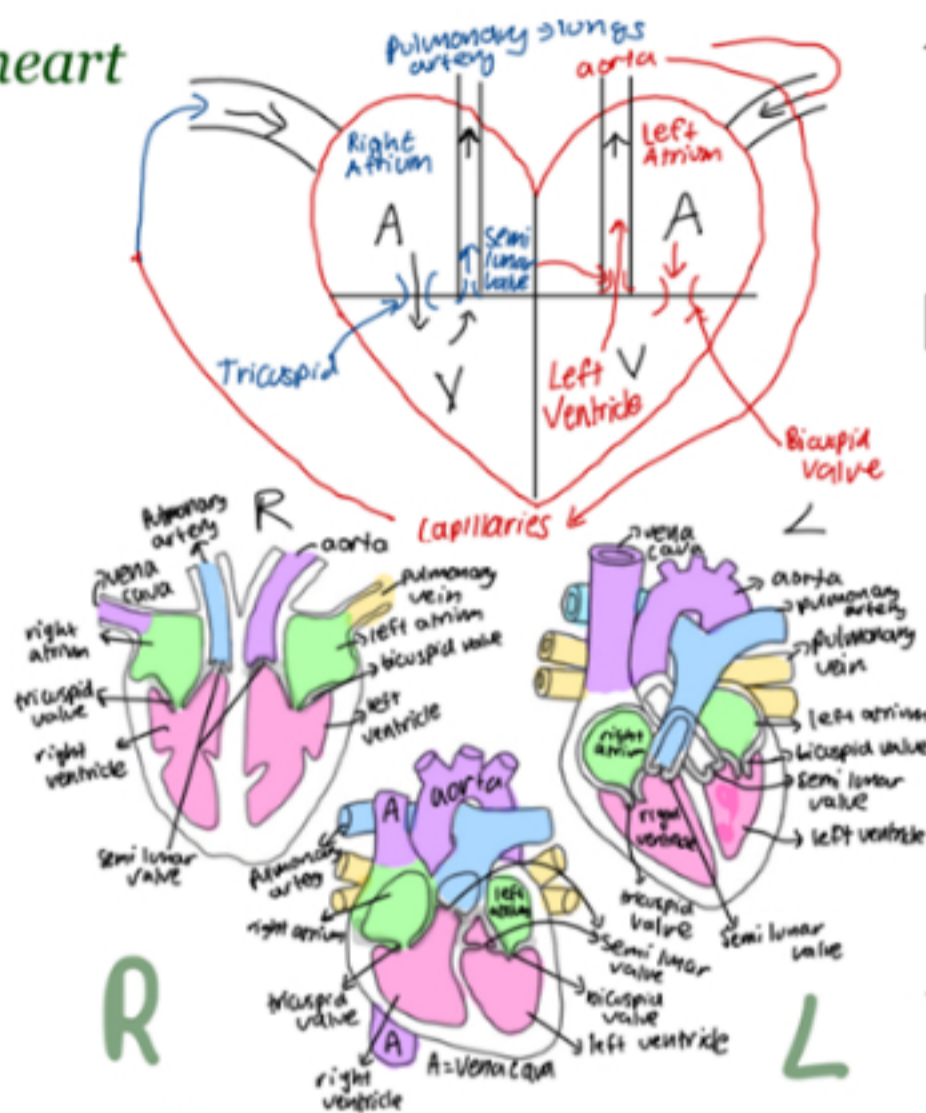 heart
Pulmonary → lungs
artery
aorta
Right
Atrium
Left
Atrium
A
A
Semi
lunar
valve
Tricuspid
V
Left
Ventricle
V
Bicuspid
valve
Capillaries
R
L
Pulmonary
artery
aorta
vena
cava
pulmonary
vein
right
atrium
left atrium
bicuspid valve
tricuspid
valve
left
ventricle
right
ventricle
semi lunar
valve
vena
cava
aorta
pulmonary
artery
pulmonary
vein
left atrium
right
atrium
bicuspid valve
semi lunar
valve
right
ventricle
left ventricle
tricuspid
valve
semi lunar
valve
A
aorta
Pulmonary
artery
left
atrium
right atrium
semi lunar
valve
tricuspid
valve
bicuspid
valve
left ventricle
A
A = Vena cava
right
ventricle
R
L